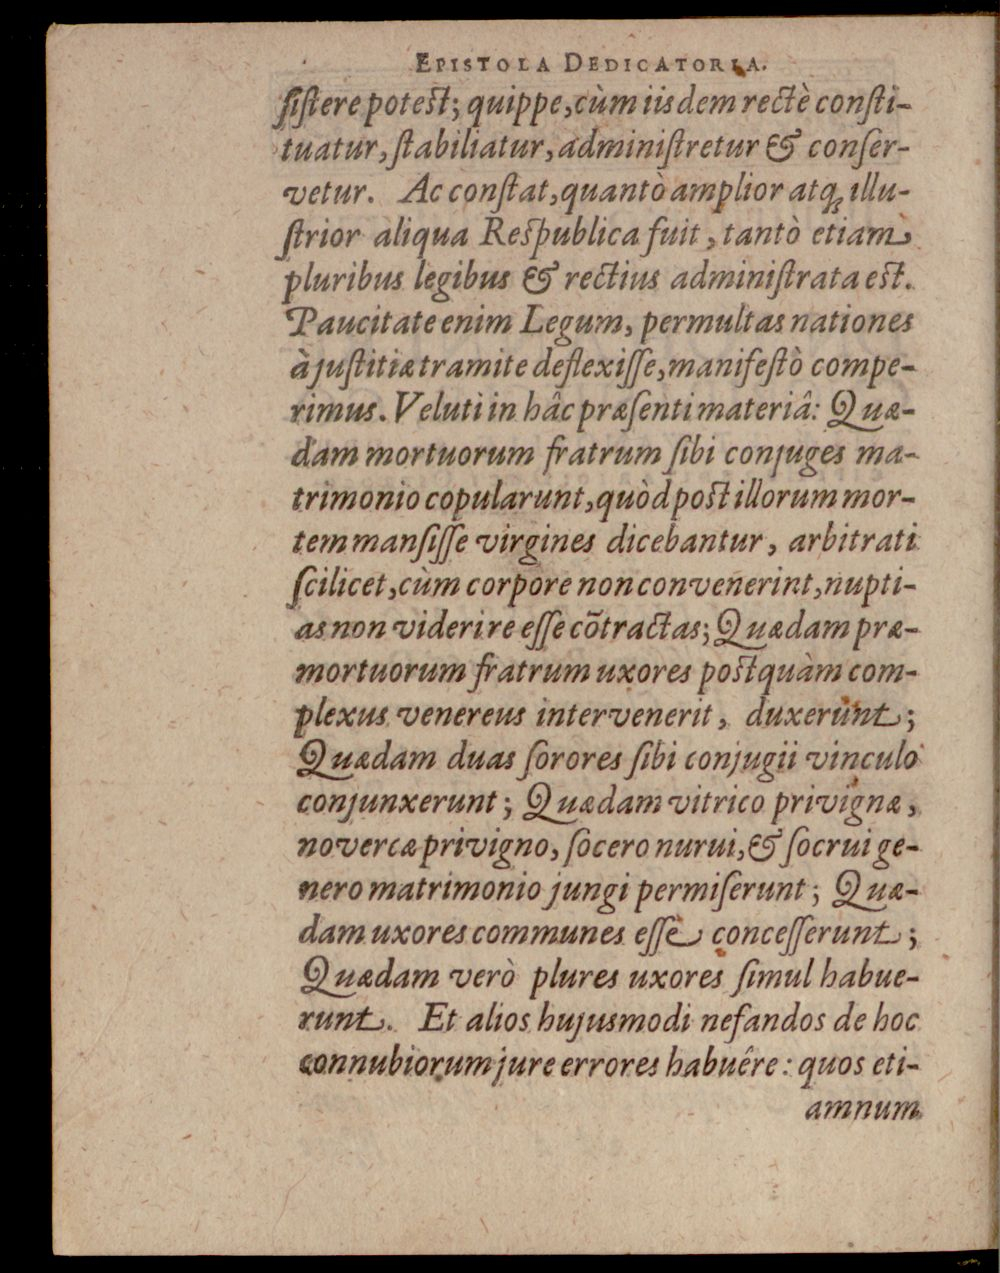 EPISTOLA DEDICATORIA.
ſiſtere potest; quippe, cùm iisdem rectè conſti-
tuatur, ſtabiliatur, adminiſtretur & conſer-
vetur. Ac conſtat, quantò amplior atq; illu-
ſtrior aliqua Respublica fuit, tantò etiam
pluribus legibus & rectius adminiſtrata est.
Paucitate enim Legum, permultas nationes
à juſtitiæ tramite deflexiſſe, manifeſtò compe-
rimus. Veluti in hâc præſenti materiâ: Quæ-
dam mortuorum fratrum ſibi conjuges ma-
trimonio copularunt, quòd post illorum mor-
tem manſiſſe virgines dicebantur, arbitrati
ſcilicet, cùm corpore non convenerint, nupti-
as non videri re eſſe cõtractas; Quædam præ-
mortuorum fratrum uxores postquàm com-
plexus venereus intervenerit, duxerunt;
Quædam duas ſorores ſibi conjugii vinculo
conjunxerunt; Quædam vitrico privignæ,
novercæ privigno, ſocero nurui, & ſocrui ge-
nero matrimonio jungi permiſerunt; Quæ-
dam uxores communes eſſe conceſſerunt;
Quædam verò plures uxores ſimul habue-
runt. Et alios hujusmodi nefandos de hoc
connubiorum jure errores habuêre: quos eti-
amnum